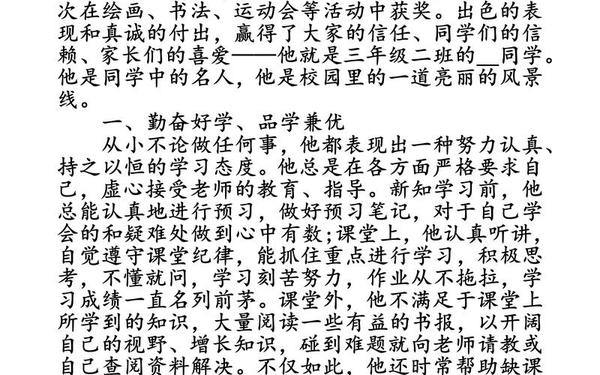 次在绘画、书法、运动会等活动中获奖。出色的表
现和真诚的付出，赢得了大家的信任、同学们的信
赖、家长们的喜爱——他就是三年级二班的__同学。
他是同学中的名人，他是校园里的一道亮丽的风景
线。
一、勤奋好学、品学兼优
从小不论做任何事，他都表现出一种努力认真、
持之以恒的学习态度。他总是在各方面严格要求自
己，虚心接受老师的教育、指导。新知学习前，他
总能认真地进行预习，做好预习笔记，对于自己学
会的和疑难处做到心中有数;课堂上，他认真听讲，
自觉遵守课堂纪律，能抓住重点进行学习，积极思
考，不懂就问，学习刻苦努力，作业从不拖拉，学
习成绩一直名列前茅。课堂外，他不满足于课堂上
所学到的知识，大量阅读一些有益的书报，以开阔
自己的视野、增长知识，碰到难题就向老师请教或
自己查阅资料解决。不仅如此，他还时常帮助缺课